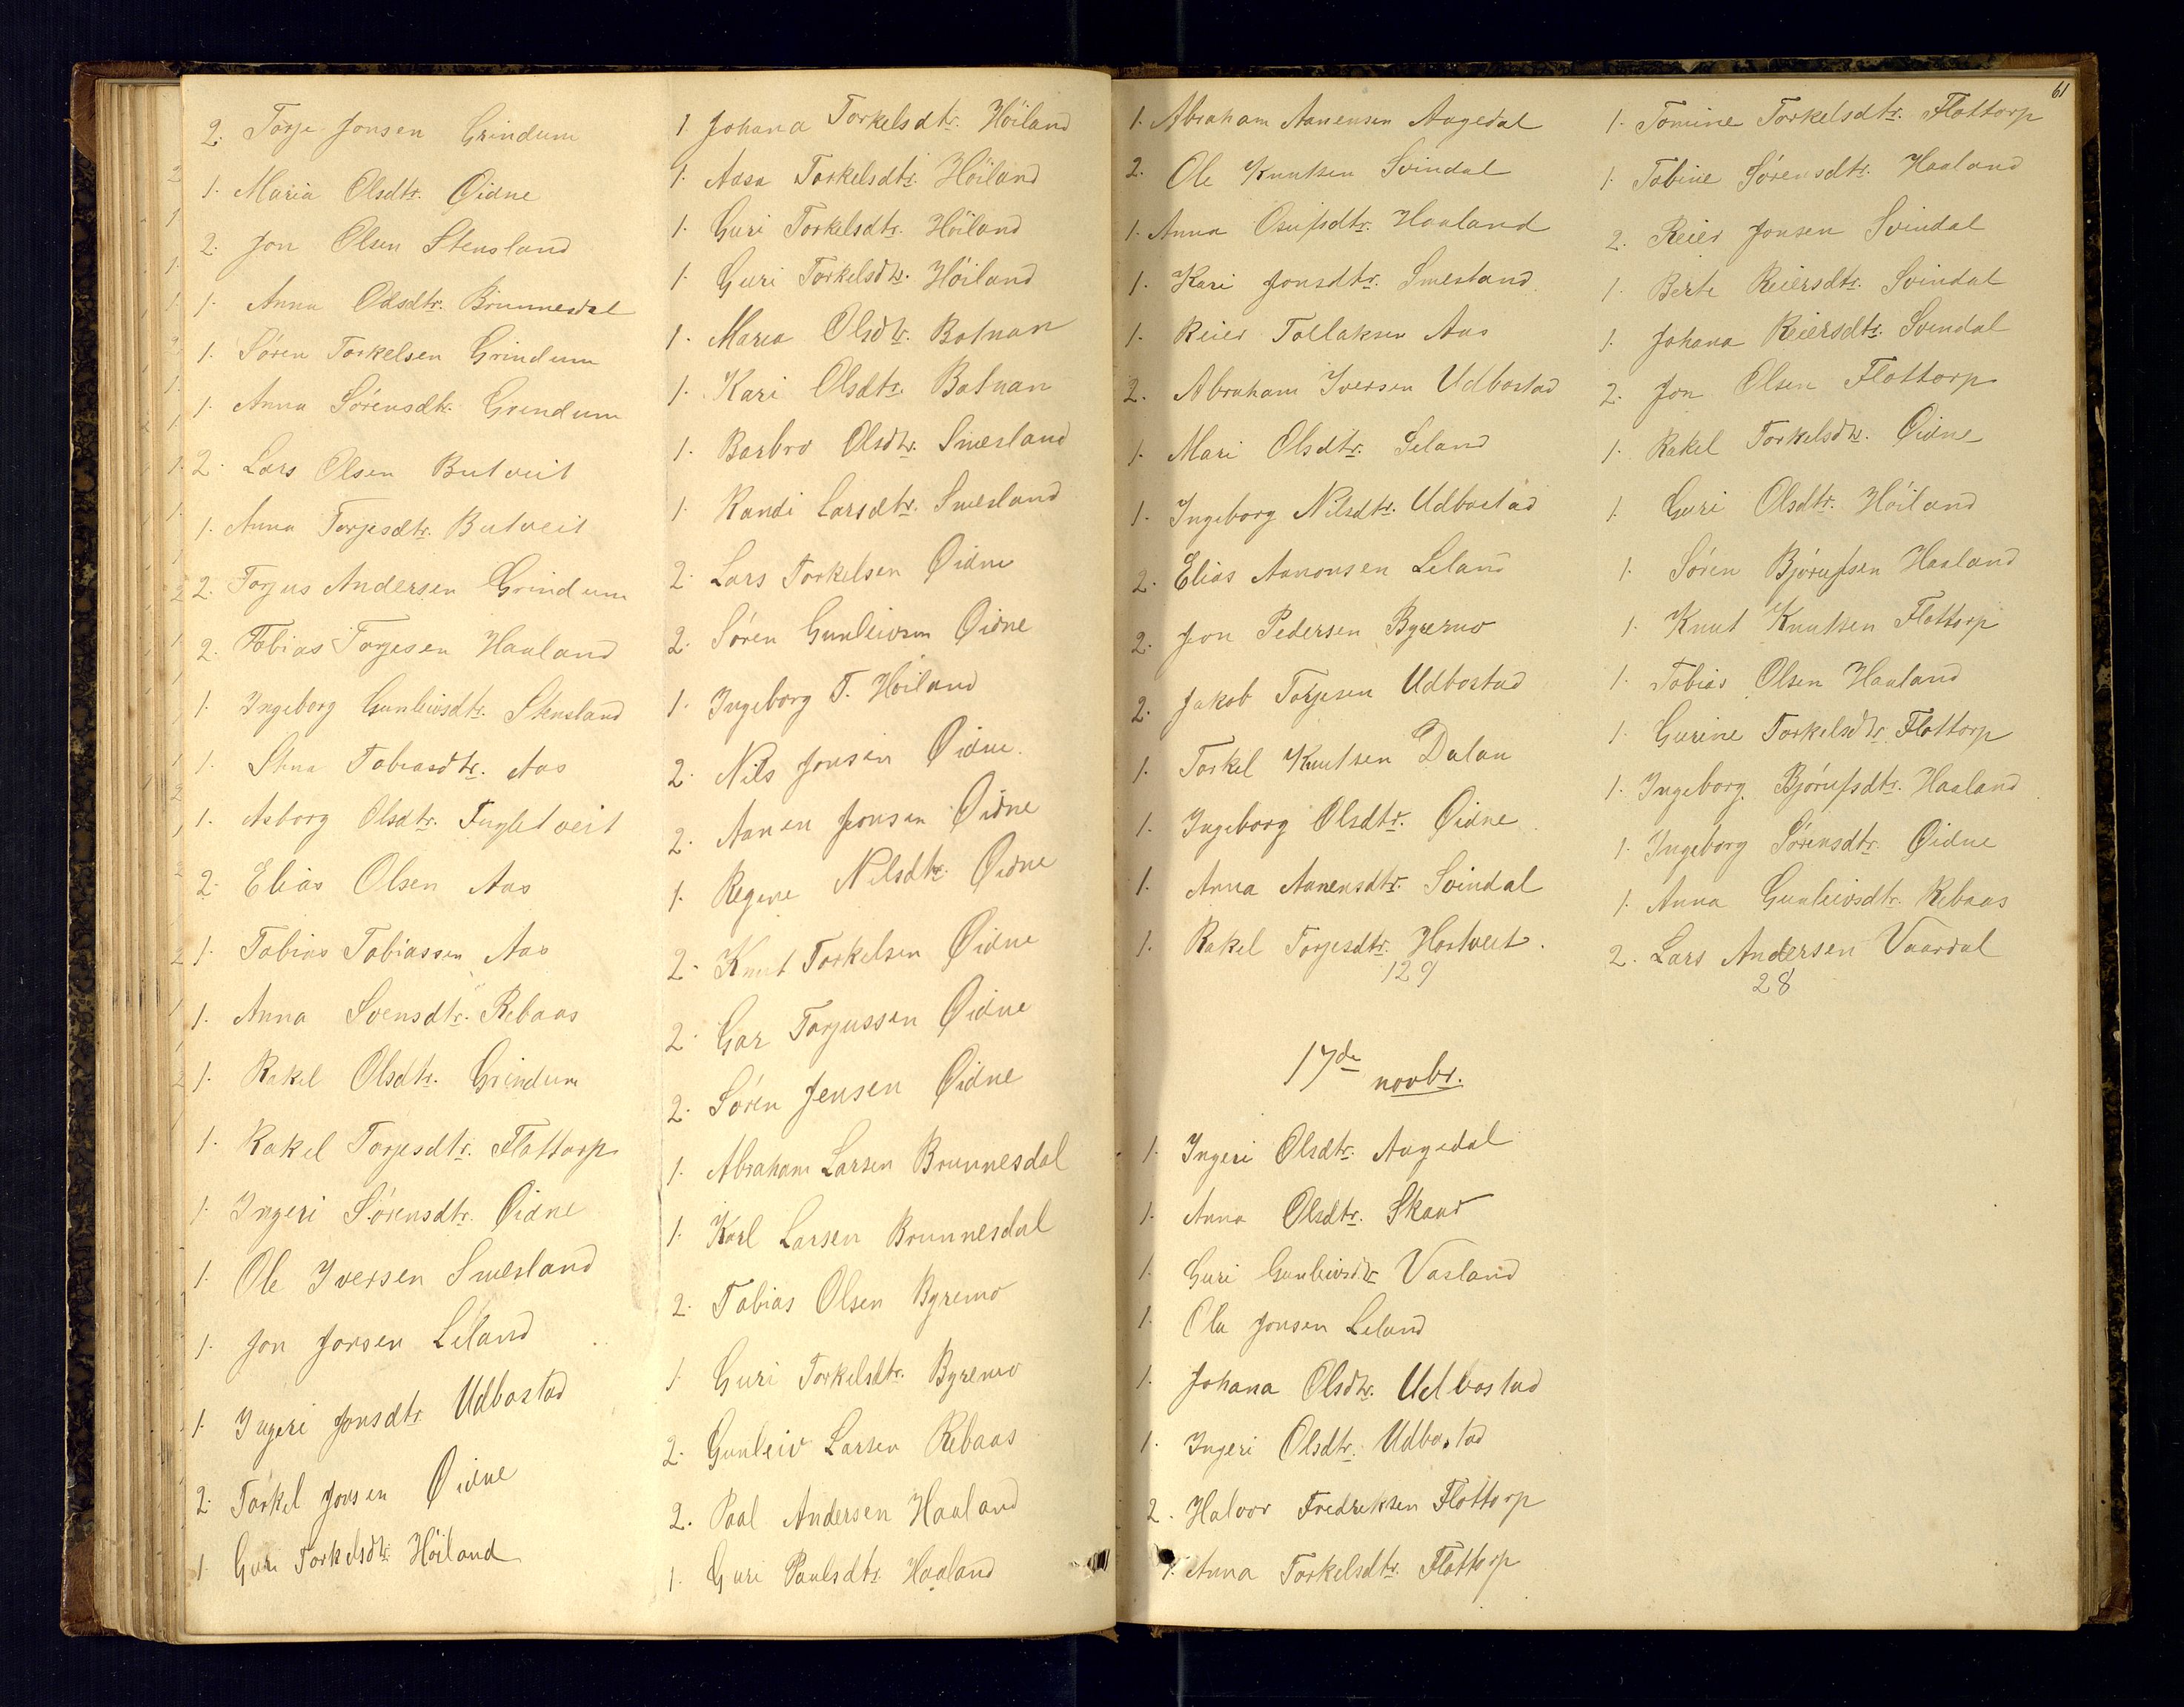 2. Torje Jonsen Grindum
1. Maria Olsdtr. Øidne
2. Jon Olsen Stensland
1. Anna Olsdtr. Brunnesdal
1. Sören Torkelsen Grindum
1. Anna Sörensdtr. Grindum
2. Lars Olsen Butveit
1. Anna Torjesdtr. Butveit
2. Torjus Andersen Grindum
2. Tobias Torjesen Haaland
1. Ingeborg Gunleivsdtr. Stensland
1. Stina Tobiasdtr. Aas
1. Asborg Olsdtr. Fugletveit
2. Elias Olsen Aas
1. Tobias Tobiassen Aas
1. Anna Svensdtr. Rebaas
1. Rakel Olsdtr. Grindum
1. Rakel Torjesdtr. Flottorp
1. Ingeri Sörensdtr. Øidne
1. Ole Iversen Smesland
1. Jon Jonsen Leland
1. Ingeri Jonsdtr. Udbostad
2. Torkel Jonsen Øidne
1. Guri Torkelsdtr. Höiland
1. Johana Torkelsdtr. Höiland
1. Aasa Torkelsdtr. Höiland
1. Guri Torkelsdtr. Höiland
1. Guri Torkelsdtr. Höiland
1. Maria Olsdtr. Botnan
1. Kari Olsdtr. Botnan
1. Barbro Olsdtr. Smesland
1. Randi Larsdtr. Smesland
2. Lars Torkelsen Øidne
2. Sören Gunleivsen Øidne
1. Ingeborg T. Höiland
2. Nils Jonsen Øidne.
2. Aanen Jonsen Øidne
1. Regine Nilsdtr. Øidne
2. Knut Torkelsen Øidne
2. Gar Torjussen Øidne
2. Sören Jensen Øidne
1. Abraham Larsen Brunnesdal
1. Karl Larsen Brunnesdal
2. Tobias Olsen Byremo
1. Guri Torkelsdtr. Byremo
2. Gunleiv Larsen Rebaas
2. Paal Andersen Haaland
1. Guri Paulsdtr. Haaland
1. Abraham Aanensen Aagedal
2. Ole Knutsen Svindal
1. Anna Osufsdtr. Haaland
1. Kari Jonsdtr. Smesland.
1. Reier Tollaksen Aas
2. Abraham Iversen Udbostad
1. Mari Olsdtr. Leland
1. Ingeborg Nilsdtr. Udbostad
2. Elias Aanonsen Leland
2. Jon Pedersen Byremo
2. Jakob Torjesen Udbostad
1. Torkel Knutsen Dalan
1. Ingeborg Olsdtr. Øidne
1. Anna Aanensdtr. Svindal
1. Rakel Torjesdtr. Hortveit.
129
17de novbr.
1. Ingeri Olsdtr. Aagedal
1. Anna Olsdtr. Skaar
1. Guri Gunleivsdtr. Vasland
1. Ola Jonsen Leland
1. Johana Olsdtr. Udbostad
1. Ingeri Olsdtr. Udbostad
2. Halvor Fredriksen Flottorp
1. Anna Torkelsdtr. Flottorp
61
1. Tomine Torkelsdtr. Flottorp
1. Tobine Sörensdtr. Haaland
2. Reier Jonsen Svindal
1. Berte Reiersdtr. Svindal
1. Johana Reiersdtr. Svindal
2. Jon Olsen Flottorp
1. Rakel Torkelsdtr. Øidne
1. Guri Olsdtr. Höiland
1. Sören Björufsen Haaland
1. Knut Knutsen Flottorp
1. Tobias Olsen Haaland
1. Gurine Torkelsdtr. Flottorp
1. Ingeborg Björufsdtr. Haaland
1. Ingeborg Sörensdtr. Øidne
1. Anna Gunleivsdtr. Rebaas
2. Lars Andersen Vaardal
28